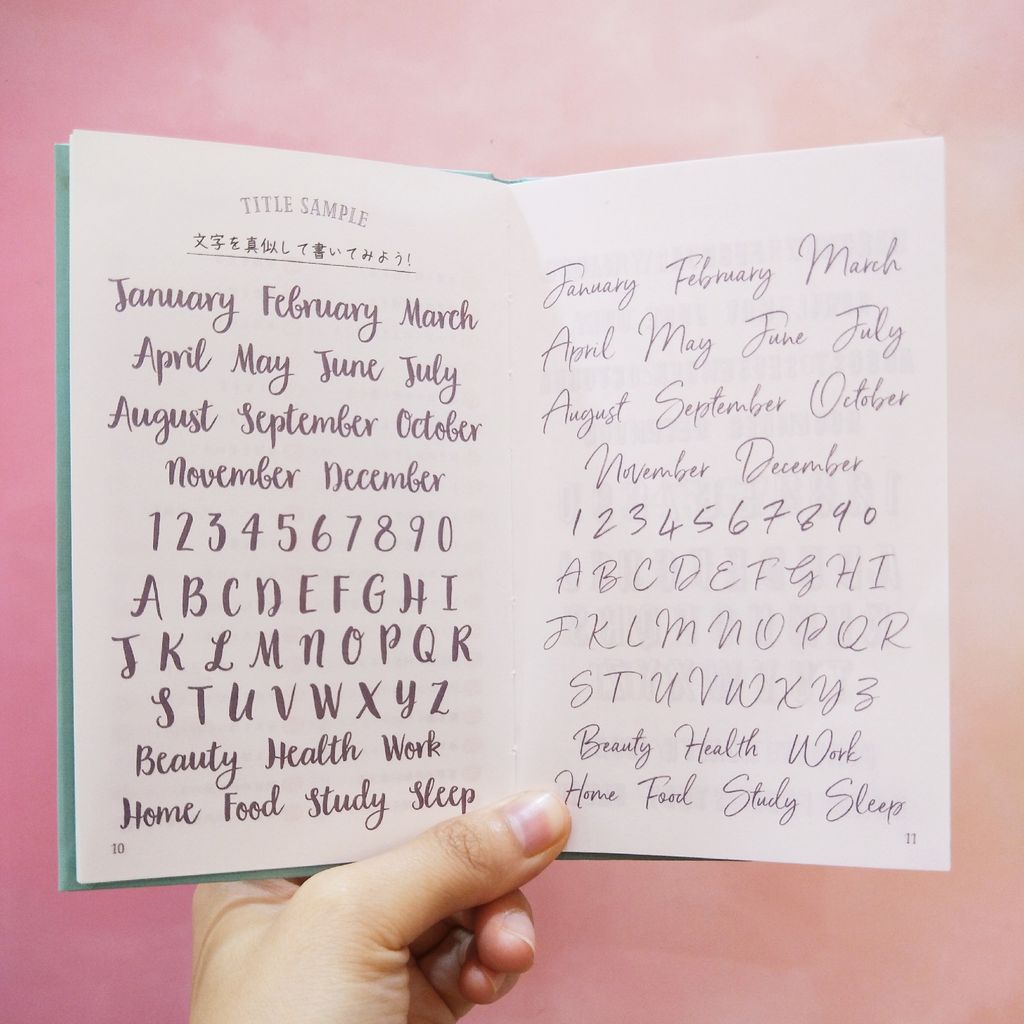 TITLE SAMPLE
文字を真似して書いてみよう!
January February March
April May June July
August September October
November December
1 2 3 4 5 6 7 8 9 0
A B C D E F G H I
J K L M N O P Q R
S T U V W X Y Z
Beauty Health Work
Home Food Study Sleep
10
January February March
April May June July
August September October
November December
1 2 3 4 5 6 7 8 9 0
A B C D E F G H I
J K L M N O P Q R
S T U V W X Y Z
Beauty Health Work
Home Food Study Sleep
11